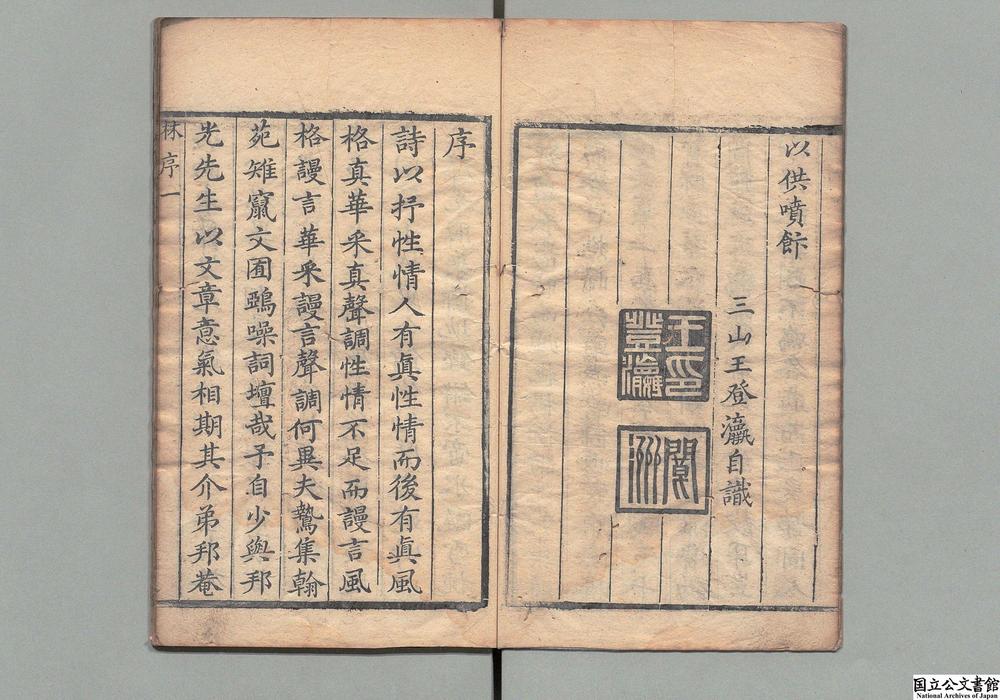 以供噴飰
三山王登瀛自識
王印登瀛
閬洲
序
詩以抒性情人有眞性情而後有眞風
格真華采真聲調性情不足而謾言風
格謾言華采謾言聲調何異夫鷙集翰
苑雉竄文囿鵶噪詞壇哉予自少與邦
光先生以文章意氣相期其介弟邦菴
林序一
国立公文書館
National Archives of Japan